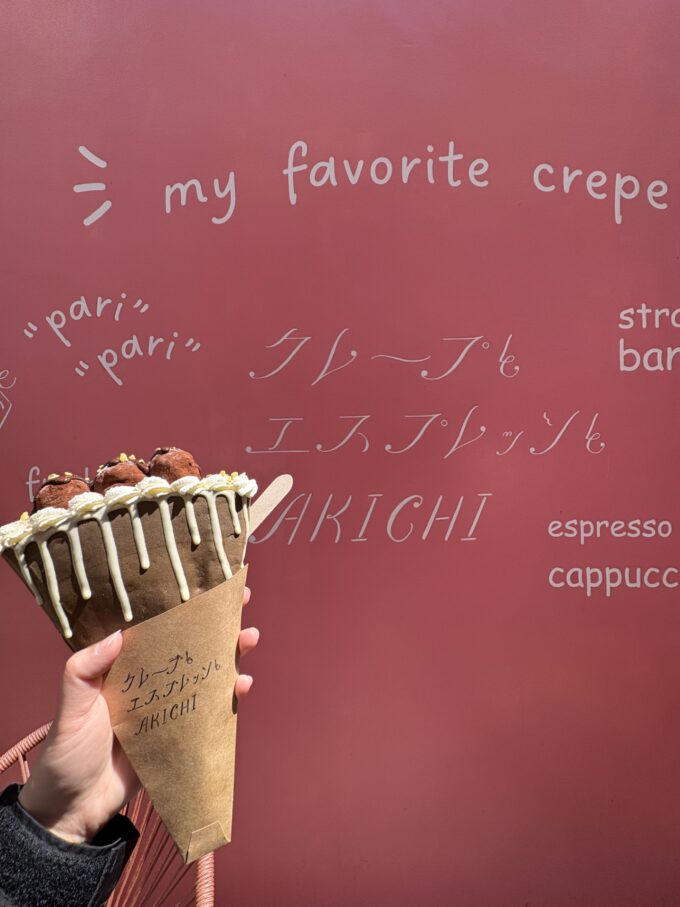 my favorite crepe
"pari"
"pari"
クレープと
エスプレッソと
AKICHI
espresso
クレープと
エスプレッソと
AKICHI